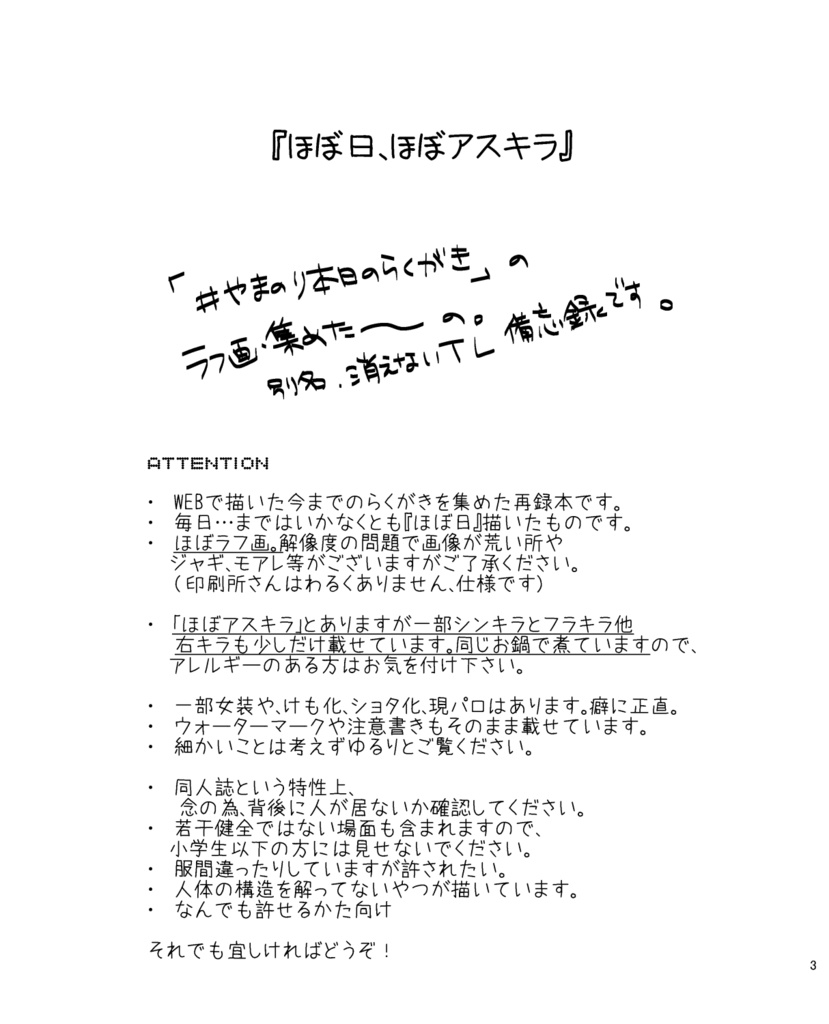 『ほぼ日、ほぼアスキラ』
「#やまのり本日のらくがき」の
ラフ画・集めた〜の。
別名、消えないTL 備忘録です。
ATTENTION
・ WEBで描いた今までのらくがきを集めた再録本です。
・ 毎日…まではいかなくとも『ほぼ日』描いたものです。
・ ほぼラフ画。解像度の問題で画像が荒い所や
ジャギ、モアレ等がございますがご了承ください。
(印刷所さんはわるくありません、仕様です)
・ 「ほぼアスキラ」とありますが一部シンキラとフラキラ他
右キラも少しだけ載せています。同じお鍋で煮ていますので、
アレルギーのある方はお気を付け下さい。
・ 一部女装や、けも化、ショタ化、現パロはあります。癖に正直。
・ ウォーターマークや注意書きもそのまま載せています。
・ 細かいことは考えずゆるりとご覧ください。
・ 同人誌という特性上、
念の為、背後に人が居ないか確認してください。
・ 若干健全ではない場面も含まれますので、
小学生以下の方には見せないでください。
・ 服間違ったりしていますが許されたい。
・ 人体の構造を解ってないやつが描いています。
・ なんでも許せるかた向け
それでも宜しければどうぞ!
3